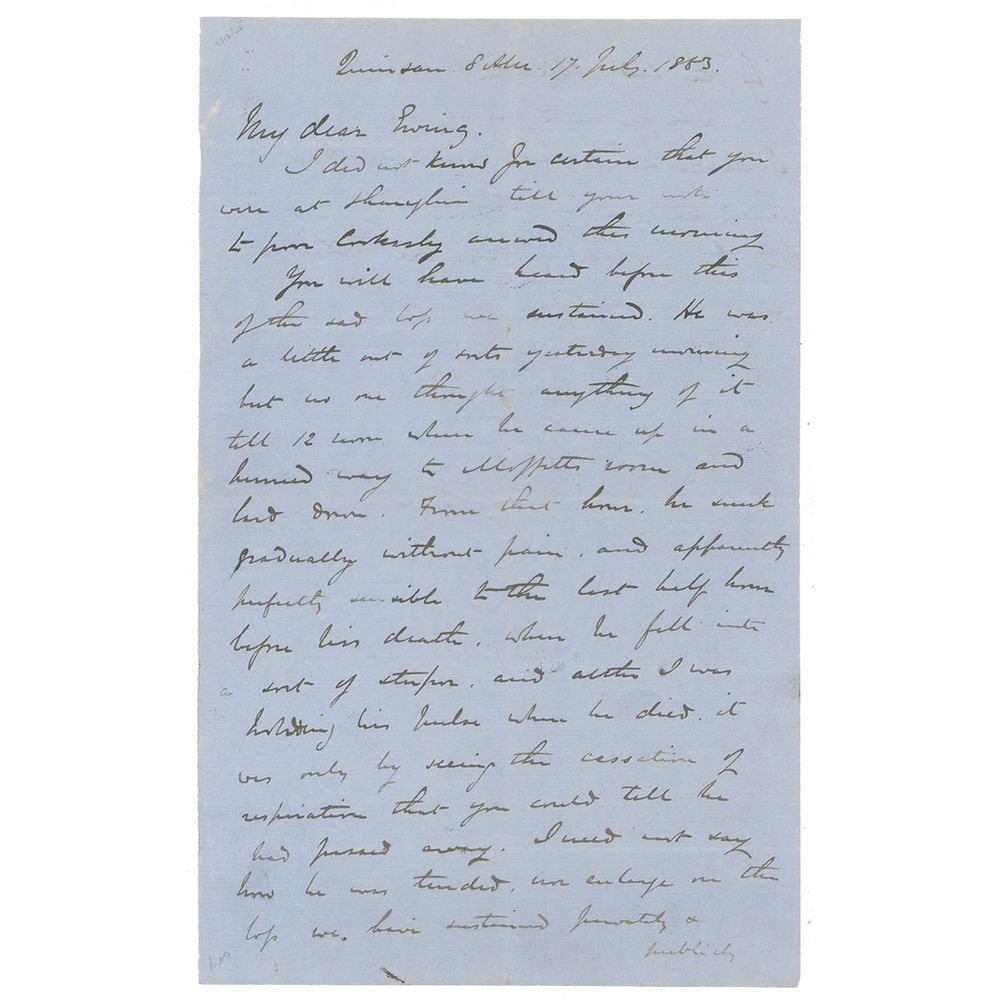 Quinsan. 8 AM. 17. July. 1863.
My dear Ewing.
I did not know for certain that you
were at Shanghai till your note
to poor Cooksley arrived this morning
You will have heard before this
of the sad loss we sustained. He was
a little out of sorts yesterday morning
but no one thought anything of it
till 12 noon when he came up in a
hurried way to Moffitts room and
laid down. From that hour, he sunk
gradually without pain, and apparently
perfectly sensible to the last half hour
before his death, when he fell into
a sort of stupor, and altho I was
holding his pulse when he died, it
was only by seeing the cessation of
respiration that you could tell he
had passed away. I need not say
how he was tended, nor enlarge on the
loss we have sustained privately &
publicly